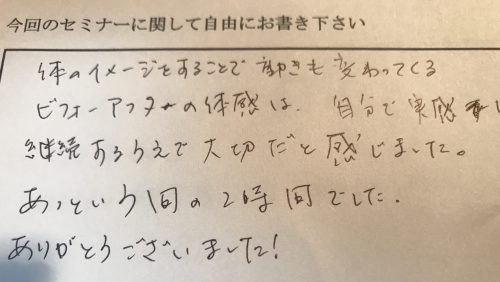 今回のセミナーに関して自由にお書き下さい
体のイメージをすることで動きも変わってくる
ビフォーアフターの体感は、自分で実感し
継続するうえで大切だと感じました。
あっという間の2時間でした.
ありがとうございました!